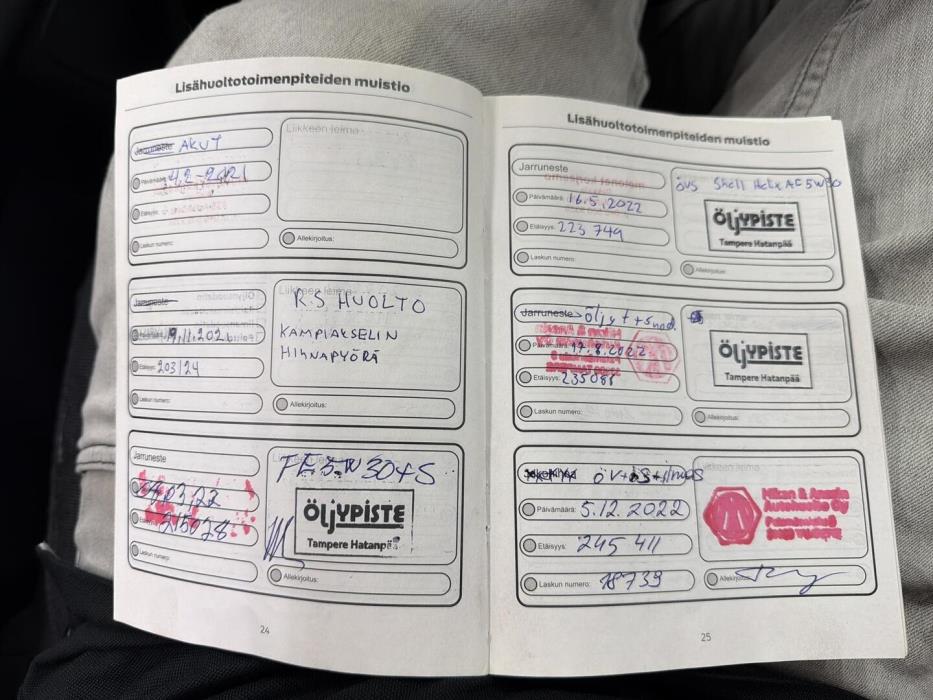 Lisähuoltotoimenpiteiden muistio
Jarruneste AKUT
Liikkeen leima
Päivämäärä: 4.2-2021
Etäisyys:
Laskun numero:
Allekirjoitus:
Jarruneste
Liikkeen leima
R.S HUOLTO
19.11.2021
KAMPIAKSELIN
HIHNAPYÖRÄ
Etäisyys: 203124
Laskun numero:
Allekirjoitus:
Jarruneste
ÖLJYPISTE
Tampere Hatanpää
215028
Laskun numero:
Allekirjoitus:
24
Lisähuoltotoimenpiteiden muistio
Jarruneste
övs Shell Helix AF 5W30
Päivämäärä: 16.5.2022
ÖLJYPISTE
Tampere Hatanpää
Etäisyys: 223 749
Laskun numero:
Allekirjoitus:
Jarruneste
Päivämäärä: 17.8.2022
ÖLJYPISTE
Tampere Hatanpää
Etäisyys: 235088
Laskun numero:
Allekirjoitus:
Liikkeen leima
Päivämäärä: 5.12.2022
Etäisyys: 245 411
Laskun numero: 18739
Allekirjoitus:
25